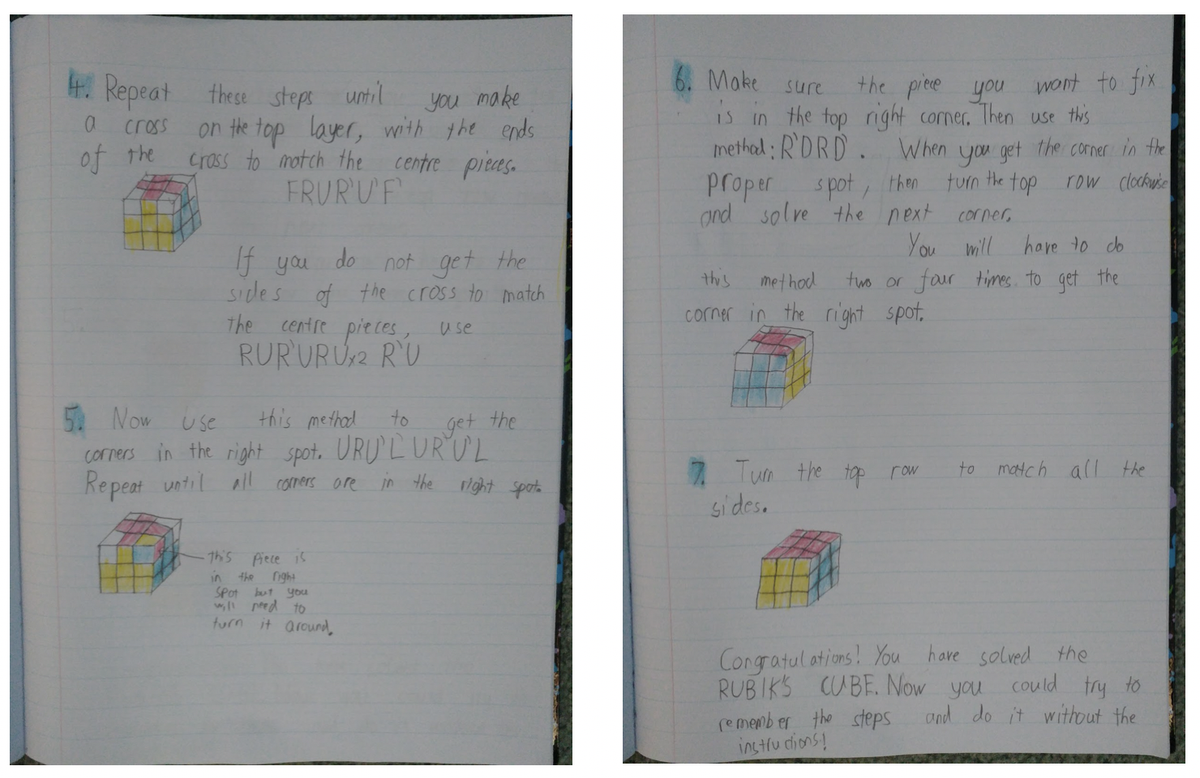 4. Repeat these steps until you make
a cross on the top layer, with the ends
of the cross to match the centre pieces.
FRUR'U'F'
If you do not get the
sides of the cross to match
the centre pieces, use
RUR'URUx2 R'U
5. Now use this method to get the
corners in the right spot. URU'L'UR'U'L
Repeat until all corners are in the right spot.
This piece is
in the right
spot but you
will need to
turn it around.
6. Make sure the piece you want to fix
is in the top right corner. Then use this
method: R'D'RD. When you get the corner in the
proper spot, then turn the top row clockwise
and solve the next corner.
You will have to do
this method two or four times to get the
corner in the right spot.
7. Turn the top row to match all the
sides.
Congratulations! You have solved the
RUBIK'S CUBE. Now you could try to
remember the steps and do it without the
instructions!